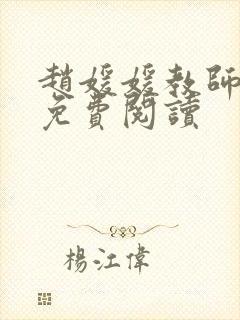 趙媛媛教師
免費閱讀
楊江偉